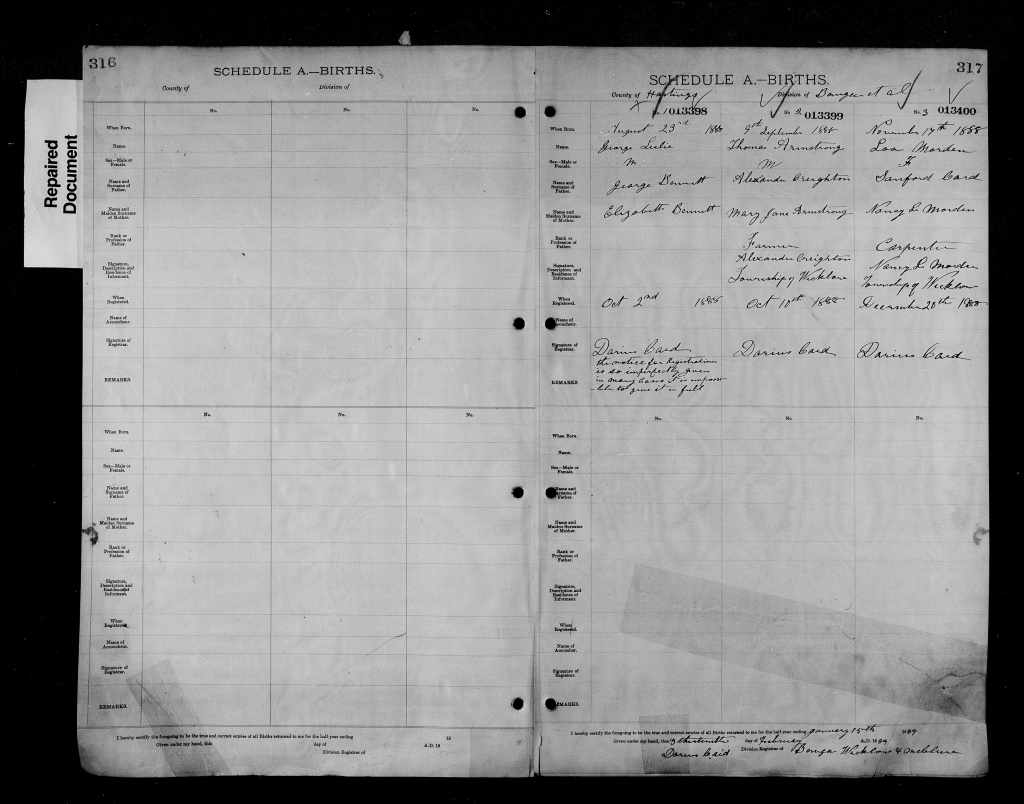 Repaired
Document
316
SCHEDULE A.—BIRTHS.
County of
Division of
No.
No.
No.
When Born.
Name.
Sex—Male or
Female.
Name and
Surname of
Father.
Name and
Maiden Surname
of Mother.
Rank or
Profession of
Father.
Signature,
Description and
Residence of
Informant.
When
Registered.
Name of
Accoucheur.
Signature of
Registrar.
REMARKS.
No.
No.
No.
When Born.
Name.
Sex—Male or
Female.
Name and
Surname of
Father.
Name and
Maiden Surname
of Mother.
Rank or
Profession of
Father.
Signature,
Description and
Residence of
Informant.
When
Registered.
Name of
Accoucheur.
Signature of
Registrar.
REMARKS.
I hereby certify the foregoing to be the true and correct entries of all Births returned to me for the half year ending 18
Given under my hand, this day of A.D. 18
Division Registrar of
317
SCHEDULE A.—BIRTHS.
County of Hastings Division of et al
No. 1 013398 No. 2 013399 No. 3 013400
When Born. August 23rd 1888 9th September 1888 November 17th 1888
Name. George Leslie Thomas Armstrong Loa Morden
Sex—Male or
Female. M M F
Name and
Surname of
Father. George Bennett Alexander Creighton Sanford Card
Name and
Maiden Surname
of Mother. Elizabeth Bennett Mary Jane Armstrong Nancy L Morden
Rank or
Profession of
Father. Farmer Carpenter
Signature,
Description and
Residence of
Informant. Alexander Creighton Nancy L Morden
Township of Wicklow Township of Wicklow
When
Registered. Oct 2nd 1888 Oct 10th 1888 December 20th 1888
Name of
Accoucheur.
Signature of
Registrar. Darius Card Darius Card Darius Card
REMARKS. the notice for Registration
is so imperfectly given
in many cases it is imposs
-ible to give it in full
No.
No.
No.
When Born.
Name.
Sex—Male or
Female.
Name and
Surname of
Father.
Name and
Maiden Surname
of Mother.
Rank or
Profession of
Father.
Signature,
Description and
Residence of
Informant.
When
Registered.
Name of
Accoucher.
Signature of
Registrar.
REMARKS.
I hereby certify the foregoing to be the true and correct entries of all Births returned to me for the half year ending January 15th 1889
Given under my hand, this day of A.D. 1889
Darius Card Division Registrar of Wicklow &